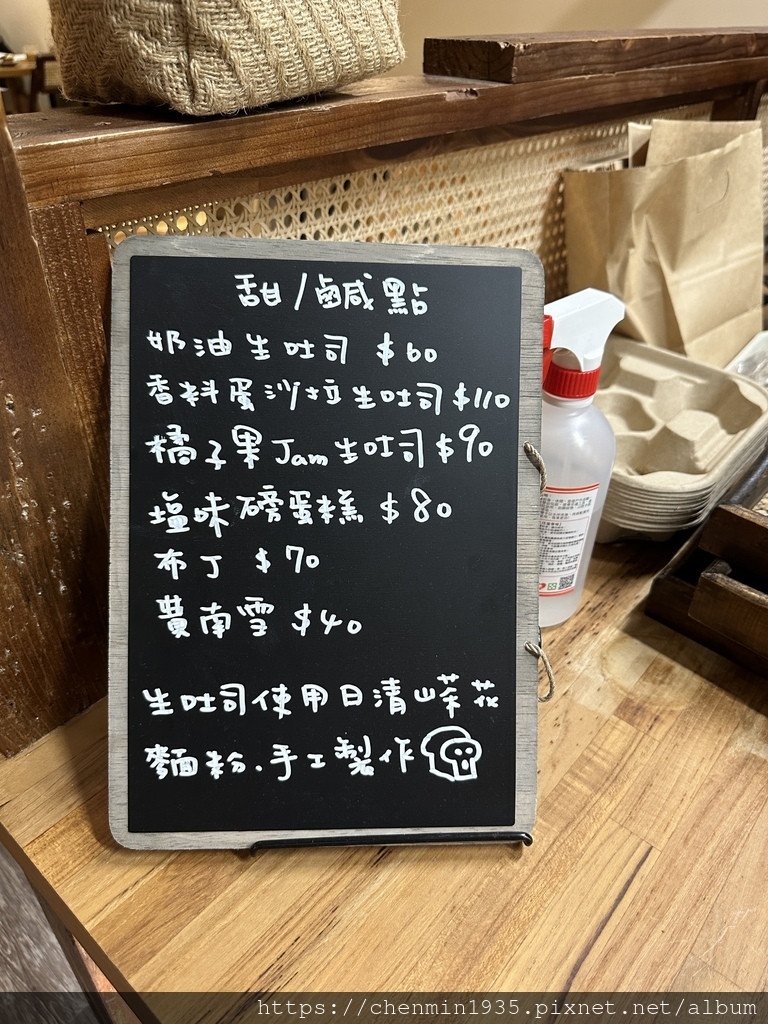 甜/鹹點
奶油生吐司 $60
香料蛋沙拉生吐司 $110
橘子果Jam生吐司 $90
塩味磅蛋糕 $80
布丁 $70
費南雪 $40
生吐司使用日清山茶花
麵粉.手工製作
https://chenmin1935.pixnet.net/album